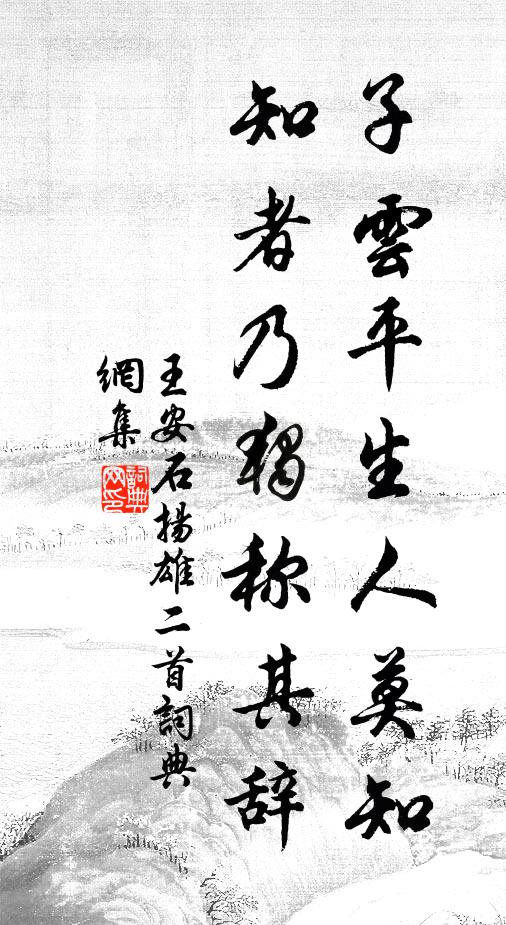 子雲平生人莫知
知者乃獨称其辞
王安石揚雄二首詞典
網集
詞典
网印